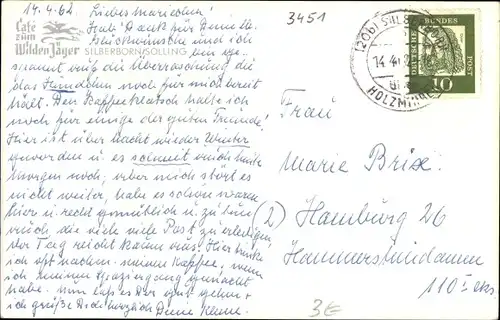 14.4.62.
Liebes Mariechen!
Café zum Wilden Jäger
SILBERBORN/SOLLING
Hab' Dank für Deine lb.
Glückwünsche und ich
spannt auf die Überraschung die
das Hamstchen noch für mich bereit
hält. Den Kaffeeklatsch halte ich
noch für einige der guten Freunde!
Hier ist über Nacht wieder Winter
geworden u es schneit auch heute
morgen noch; aber mich stört es
nicht weiter, habe es schön warm
hier u recht gemütlich u zu tun
auch, die viele viele Post zu erledigen
der Tag reicht kaum aus. Hier trinke
ich oft nachm. meinen Kaffee, wenn
ich meinen Spaziergang gemacht
habe. Nun laß es Dir gut gehen u
ich grüße Dich herzlich Deine
3451
(20b) SILBERBORN
14.4.62
HOLZMINDEN
DEUTSCHE BUNDESPOST
10
Frau
Marie Brix
(2) Hamburg 26
Hammersteindamm
110 I
3€